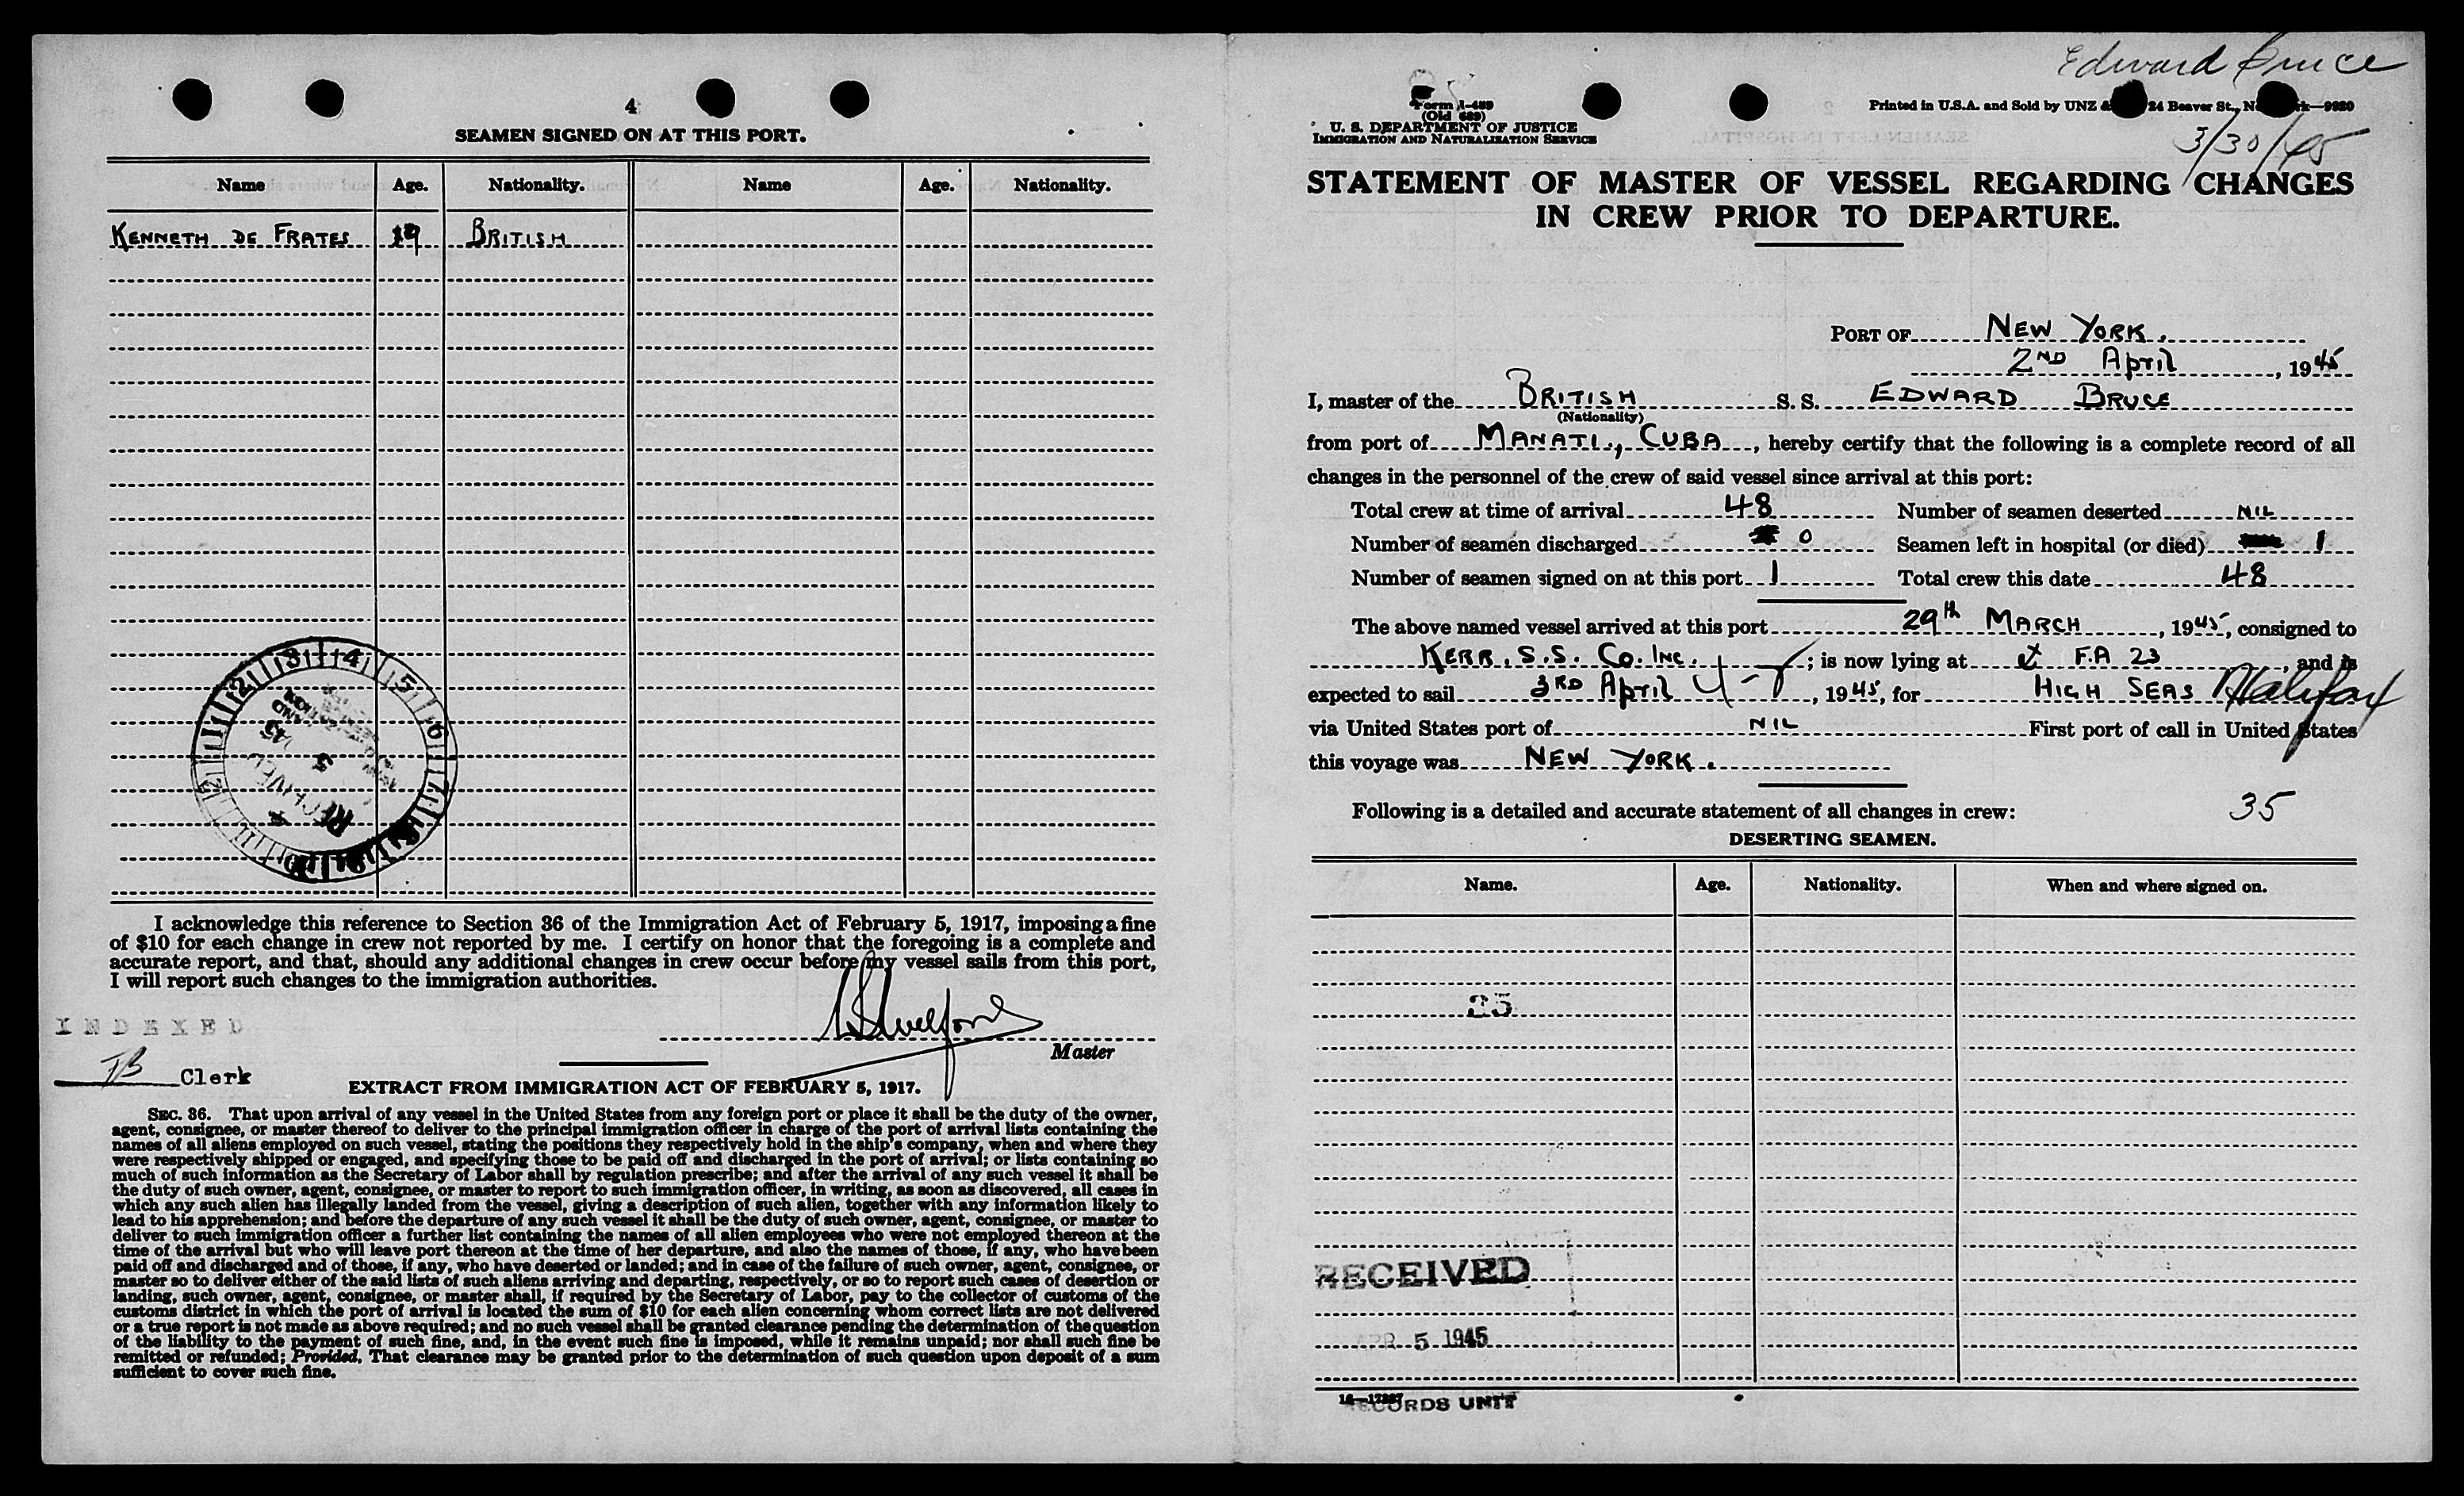 4
SEAMEN SIGNED ON AT THIS PORT.
Name Age. Nationality. Name Age. Nationality.
KENNETH DE FRATES 19 BRITISH
I acknowledge this reference to Section 36 of the Immigration Act of February 5, 1917, imposing a fine
of $10 for each change in crew not reported by me. I certify on honor that the foregoing is a complete and
accurate report, and that, should any additional changes in crew occur before my vessel sails from this port,
I will report such changes to the immigration authorities.
INDEXED
Master
Clerk
EXTRACT FROM IMMIGRATION ACT OF FEBRUARY 5, 1917.
SEC. 36. That upon arrival of any vessel in the United States from any foreign port or place it shall be the duty of the owner,
agent, consignee, or master thereof to deliver to the principal immigration officer in charge of the port of arrival lists containing the
names of all aliens employed on such vessel, stating the positions they respectively hold in the ship's company, when and where they
were respectively shipped or engaged, and specifying those to be paid off and discharged in the port of arrival; or lists containing so
much of such information as the Secretary of Labor shall by regulation prescribe; and after the arrival of any such vessel it shall be
the duty of such owner, agent, consignee, or master to report to such immigration officer, in writing, as soon as discovered, all cases in
which any such alien has illegally landed from the vessel, giving a description of such alien, together with any information likely to
lead to his apprehension; and before the departure of any such vessel it shall be the duty of such owner, agent, consignee, or master to
deliver to such immigration officer a further list containing the names of all alien employees who were not employed thereon at the
time of the arrival but who will leave port thereon at the time of her departure, and also the names of those, if any, who have been
paid off and discharged and of those, if any, who have deserted or landed; and in case of the failure of such owner, agent, consignee, or
master so to deliver either of the said lists of such aliens arriving and departing, respectively, or so to report such cases of desertion or
landing, such owner, agent, consignee, or master shall, if required by the Secretary of Labor, pay to the collector of customs of the
customs district in which the port of arrival is located the sum of $10 for each alien concerning whom correct lists are not delivered
or a true report is not made as above required; and no such vessel shall be granted clearance pending the determination of the question
of the liability to the payment of such fine, and, in the event such fine is imposed, while it remains unpaid; nor shall such fine be
remitted or refunded; Provided, That clearance may be granted prior to the determination of such question upon deposit of a sum
sufficient to cover such fine.
Edward Bruce
Form I-489
(Old 689)
Printed in U.S.A. and Sold by UNZ & 24 Beaver St., 9920
U. S. DEPARTMENT OF JUSTICE
IMMIGRATION AND NATURALIZATION SERVICE
3/30/45
STATEMENT OF MASTER OF VESSEL REGARDING CHANGES
IN CREW PRIOR TO DEPARTURE.
PORT OF NEW YORK.
2ND April, 1945
I, master of the BRITISH S. S. EDWARD BRUCE
(Nationality)
from port of MANATI, CUBA, hereby certify that the following is a complete record of all
changes in the personnel of the crew of said vessel since arrival at this port:
Total crew at time of arrival 48 Number of seamen deserted NIL
Number of seamen discharged 0 Seamen left in hospital (or died) 1
Number of seamen signed on at this port 1 Total crew this date 48
The above named vessel arrived at this port 29th MARCH, 1945, consigned to
KERR. S.S. Co. INC. ; is now lying at F.A 23, and is
expected to sail 3RD April, 1945, for HIGH SEAS Halifax
via United States port of NIL First port of call in United States
this voyage was NEW YORK.
Following is a detailed and accurate statement of all changes in crew: 35
DESERTING SEAMEN.
Name. Age. Nationality. When and where signed on.
35
RECEIVED
APR 5 1945
RECORDS UNIT